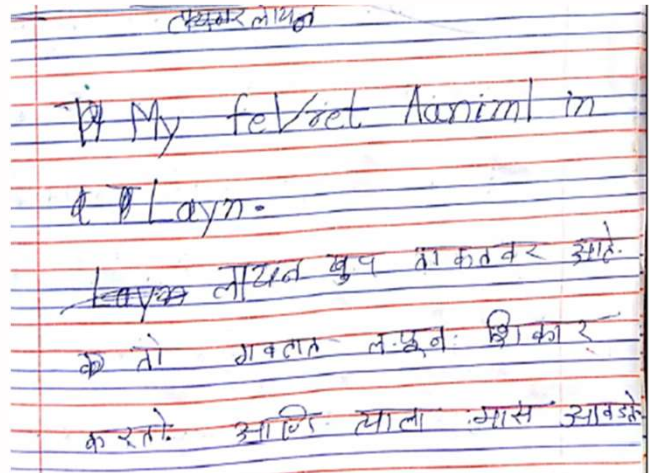 टायगर लायन
My feVret Aaniml in
Layn.
लायन खुप ताकतवर आहे.
तो गवतात लपून शिकार
करतो. आणि त्याला मास आवडते.